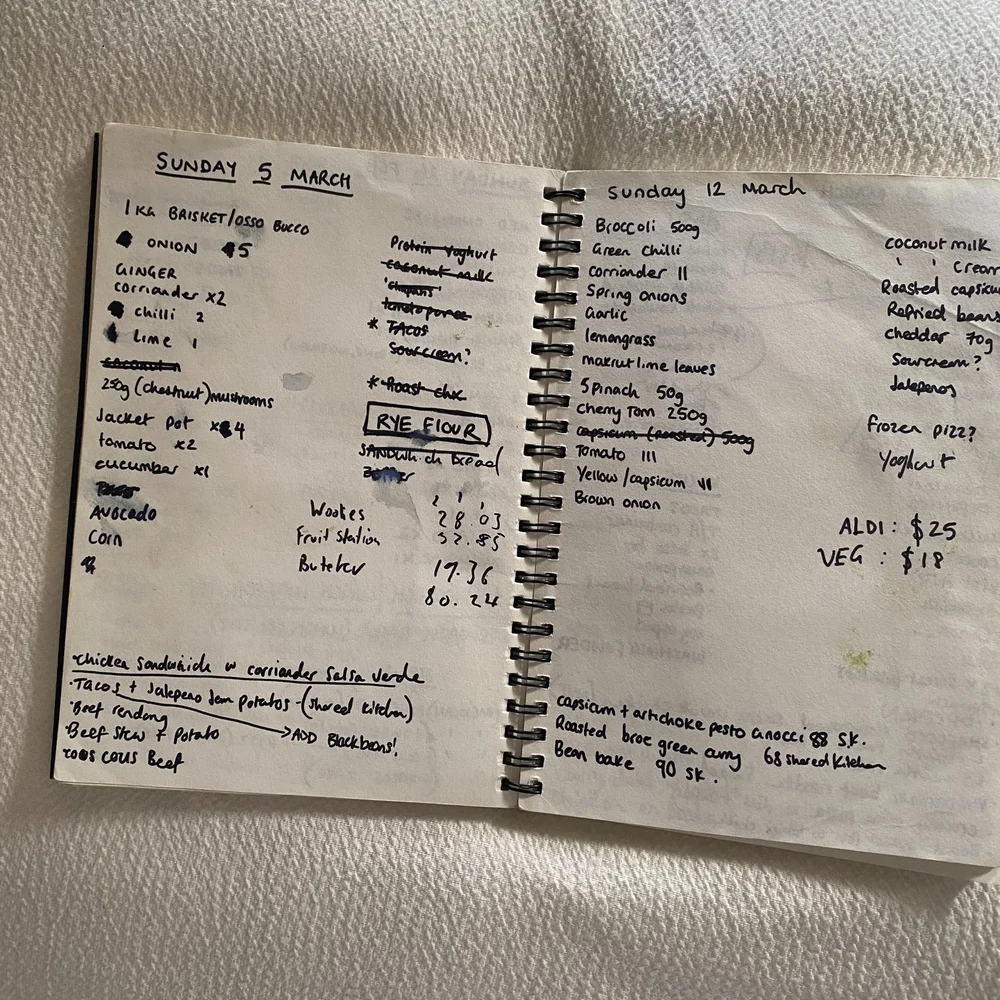 SUNDAY 5 MARCH
1 KG BRISKET/OSSO BUCCO
ONION 5
GINGER
corriander x2
chilli 2
lime 1
250g (chestnut) mushrooms
Jacket pot x4
tomato x2
cucumbar x1
AVOCADO
Corn
Protein Yoghurt
coconut milk
* TACOS
Sourcream?
* Roast chx
RYE FLOUR
SANDWich bread
Woolies 28.03
Fruit Station 32.85
Butcher 19.36
80.24
chicken sandwhich w corriander Salsa verde
· Tacos + Jalepeno Jam potatos - (shared kitchen)
· Beef rendang
· Beef stew + potato
→ ADD Blackbeans!
cous cous Beef
Sunday 12 March
Broccoli 500g
Green chilli
corriander II
Spring onions
Garlic
lemongrass
makrut lime leaves
Spinach 50g
cherry Tom 250g
capsicum (roasted) 500g
Tomato III
Yellow/capsicum VI
Brown onion
coconut milk
' ' cream
Roasted capsicum
Refried beans
cheddar 70g
Sourcream?
Jalepenos
Frozen pizz?
Yoghurt
ALDI : $25
VEG : $18
capsicum + artichoke pesto gnocci 88 SK.
Roasted broc green curry 68 shared Kitchen
Bean bake 90 SK.